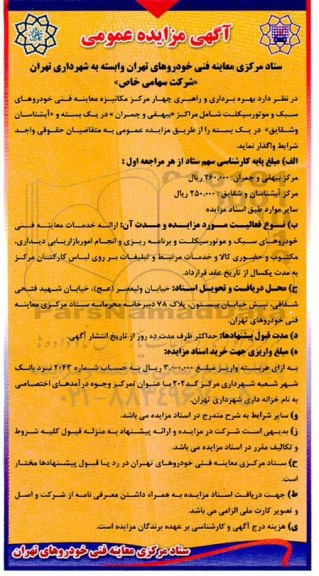 آگهی مزایده عمومی
ستاد مرکزی معاینه فنی خودروهای تهران وابسته به شهرداری تهران
«شرکت سهامی خاص»
در نظر دارد بهره برداری و راهبری چهار مرکز مکانیزه معاینه فنی خودروهای
سبک و موتورسیکلت شامل مراکز «بیهقی و چمران» در یک بسته و «آبشناسان
وشقایق» در یک بسته را از طریق مزایده عمومی به متقاضیان حقوقی واجد
شرایط واگذار نماید.
الف) مبلغ پایه کارشناسی سهم ستاد از هر مراجعه اول :
مرکز بیهقی و چمران: ۲۶۰،۰۰۰ ریال
مرکز آبشناسان و شقایق: ۲۵۰،۰۰۰ ریال
سایر موارد طبق اسناد مزایده
ب) نوع فعالیت مورد مزایده و مدت آن: ارائه خدمات معاینه فنی
خودروهای سبک و موتورسیکلت و برنامه ریزی و انجام امور بازاریابی دیداری،
مکتوب و حضوری کالا و خدمات مرتبط و تبلیغات بر روی لباس کارکنان مرکز
به مدت یکسال از تاریخ عقد قرارداد.
ج) محل دریافت و تحویل اسناد: خیابان ولیعصر (عج)، خیابان شهید فتحی
شقاقی، نبش خیابان بیستون، پلاک ۷۸ دبیرخانه محرمانه ستاد مرکزی معاینه
فنی خودروهای تهران.
د) مدت قبول پیشنهادها: حداکثر ظرف مدت ده روز از تاریخ انتشار آگهی.
ه) مبلغ واریزی جهت خرید اسناد مزایده:
به ازای هر بسته واریز مبلغ ۳،۰۰۰،۰۰۰ ریال به حساب شماره ۲۰۴۳ نزد بانک
شهر شعبه شهرداری مرکز کد ۲۰۴ با عنوان تمرکز وجوه درآمدهای اختصاصی
به نام خزانه داری شهرداری تهران.
و) سایر شرایط به شرح مندرج در اسناد مزایده می باشد.
ز) بدیهی است شرکت در مزایده و ارائه پیشنهاد به منزله قبول کلیه شروط و
تکالیف مقرر در اسناد مزایده می باشد.
ح) ستاد مرکزی معاینه فنی خودروهای تهران در رد یا قبول پیشنهادها مختار
است.
ط) جهت دریافت اسناد مزایده به همراه داشتن معرفی نامه از شرکت و اصل و
تصویر کارت ملی الزامی می باشد.
ی) هزینه درج آگهی و کارشناسی بر عهده برندگان مزایده است.
ستاد مرکزی معاینه فنی خودروهای تهران